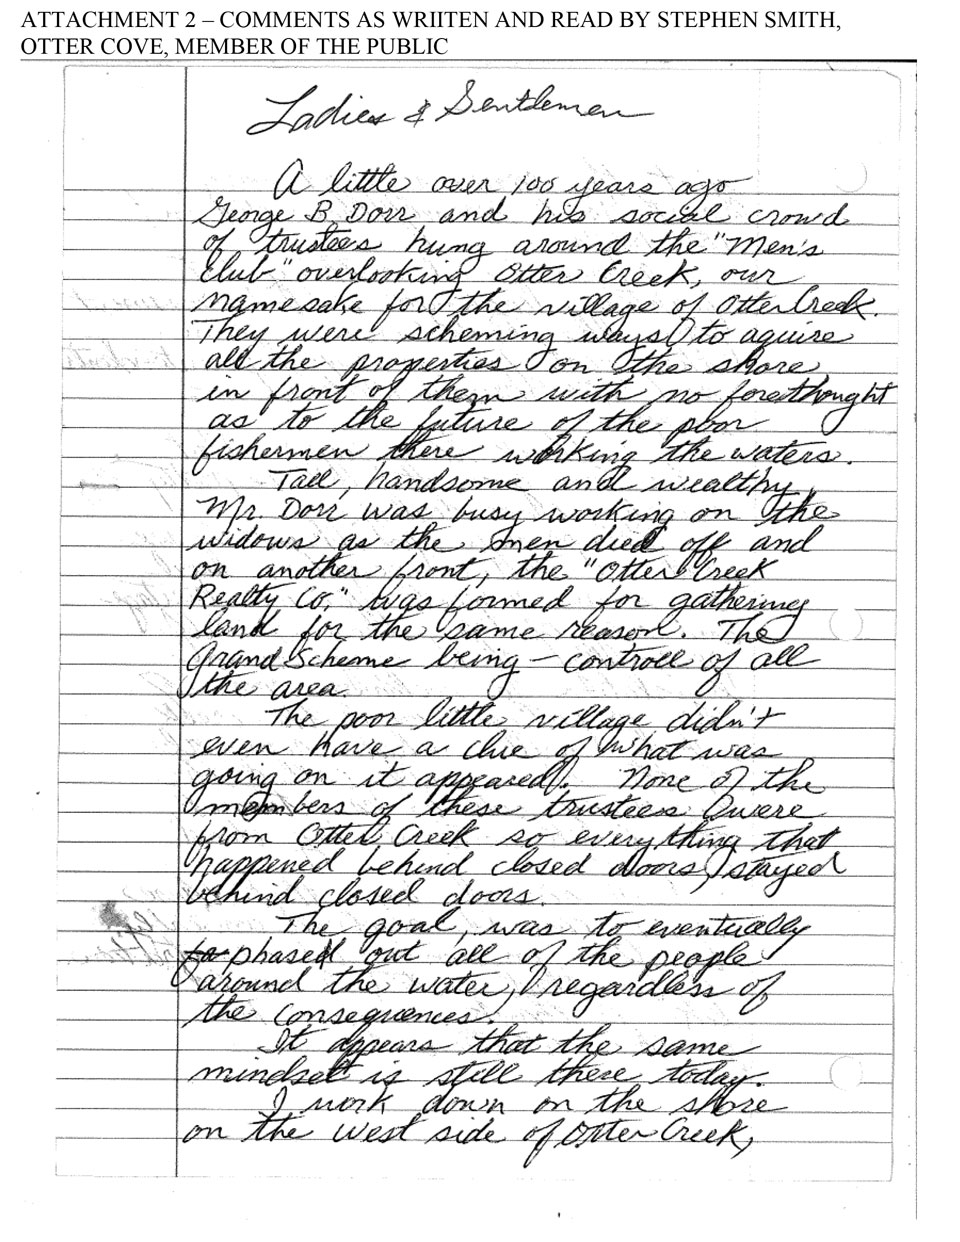 ATTACHMENT 2 – COMMENTS AS WRIITEN AND READ BY STEPHEN SMITH,
OTTER COVE, MEMBER OF THE PUBLIC
Ladies & Gentlemen
A little over 100 years ago
George B Dorr and his social crowd
of trustees hung around the "Men's
Club" overlooking Otter Creek, our
namesake for the village of Otter Creek.
They were scheming ways to aquire
all the properties on the shore
in front of them with no forethought
as to the future of the poor
fishermen there working the waters.
Tall, handsome and wealthy,
Mr. Dorr was busy working on the
widows as the men died off and
on another front, the "Otter Creek
Realty Co," was formed for gathering
land for the same reason. The
Grand Scheme being – controll of all
the area
The poor little village didn't
even have a clue of what was
going on it appeared. None of the
members of these trustees were
from Otter Creek so everything that
happened behind closed doors, stayed
behind closed doors.
The goal, was to eventually
phased out all of the people
around the water, regardless of
the consequences.
It appears that the same
mindset is still there today.
I work down on the shore
on the west side of Otter Creek,